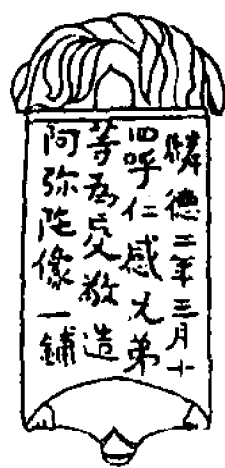 麟德二年三月十
四呼仁感兄弟
等為父敬造
阿弥陀像一鋪